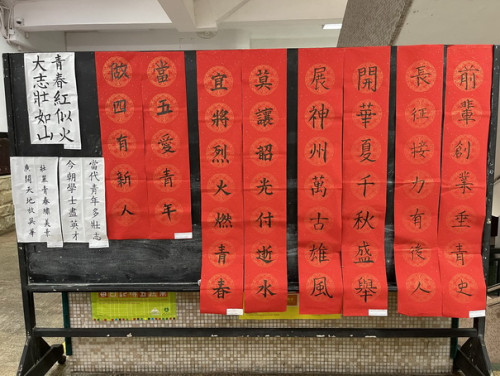 前輩創業垂青史
長征接力有後人
開華夏千秋盛舉
展神州萬古雄風
莫讓韶光付逝水
宜將烈火燃青春
當五愛青年
做四有新人
青春紅似火
大志壯如山
當代青年多壯志
今朝學士盡英才
壯麗青春
廣闊天地